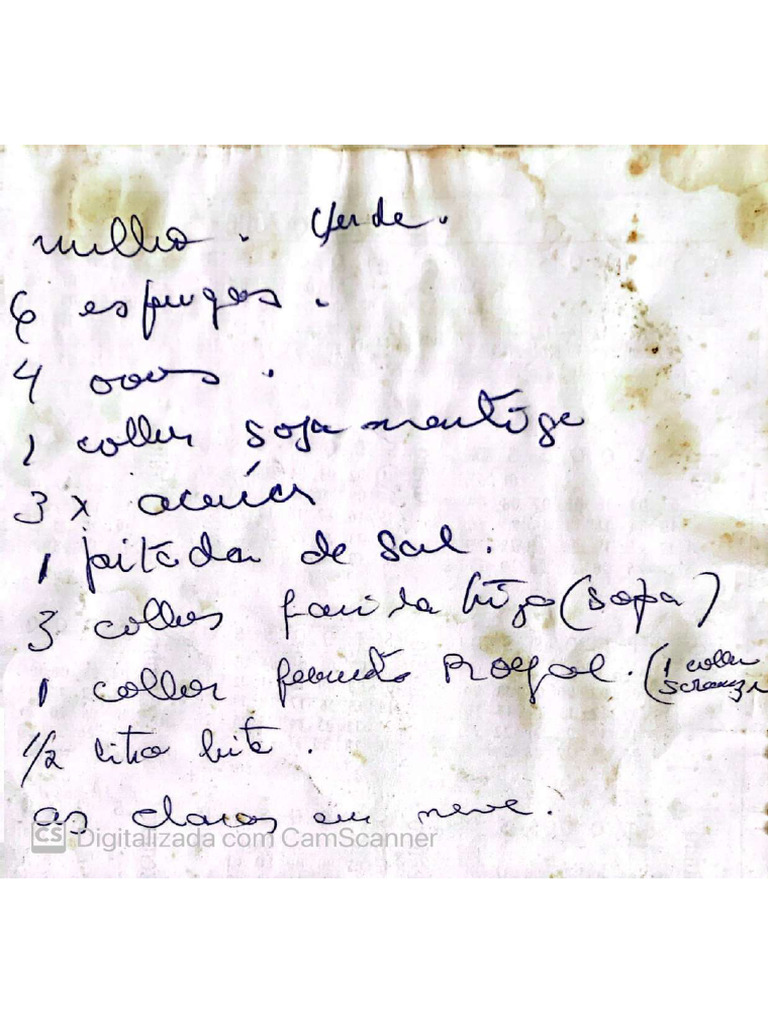 milho. Verde.
6 espigas.
4 ovos.
1 colher sopa manteiga
3 x açucar
1 pitada de sal.
3 colhes farinha trigo (sopa)
1 colher fermento Royal. (1 colher
sobremesa
1/2 litro leite.
as claras em neve.
CS Digitalizada com CamScanner